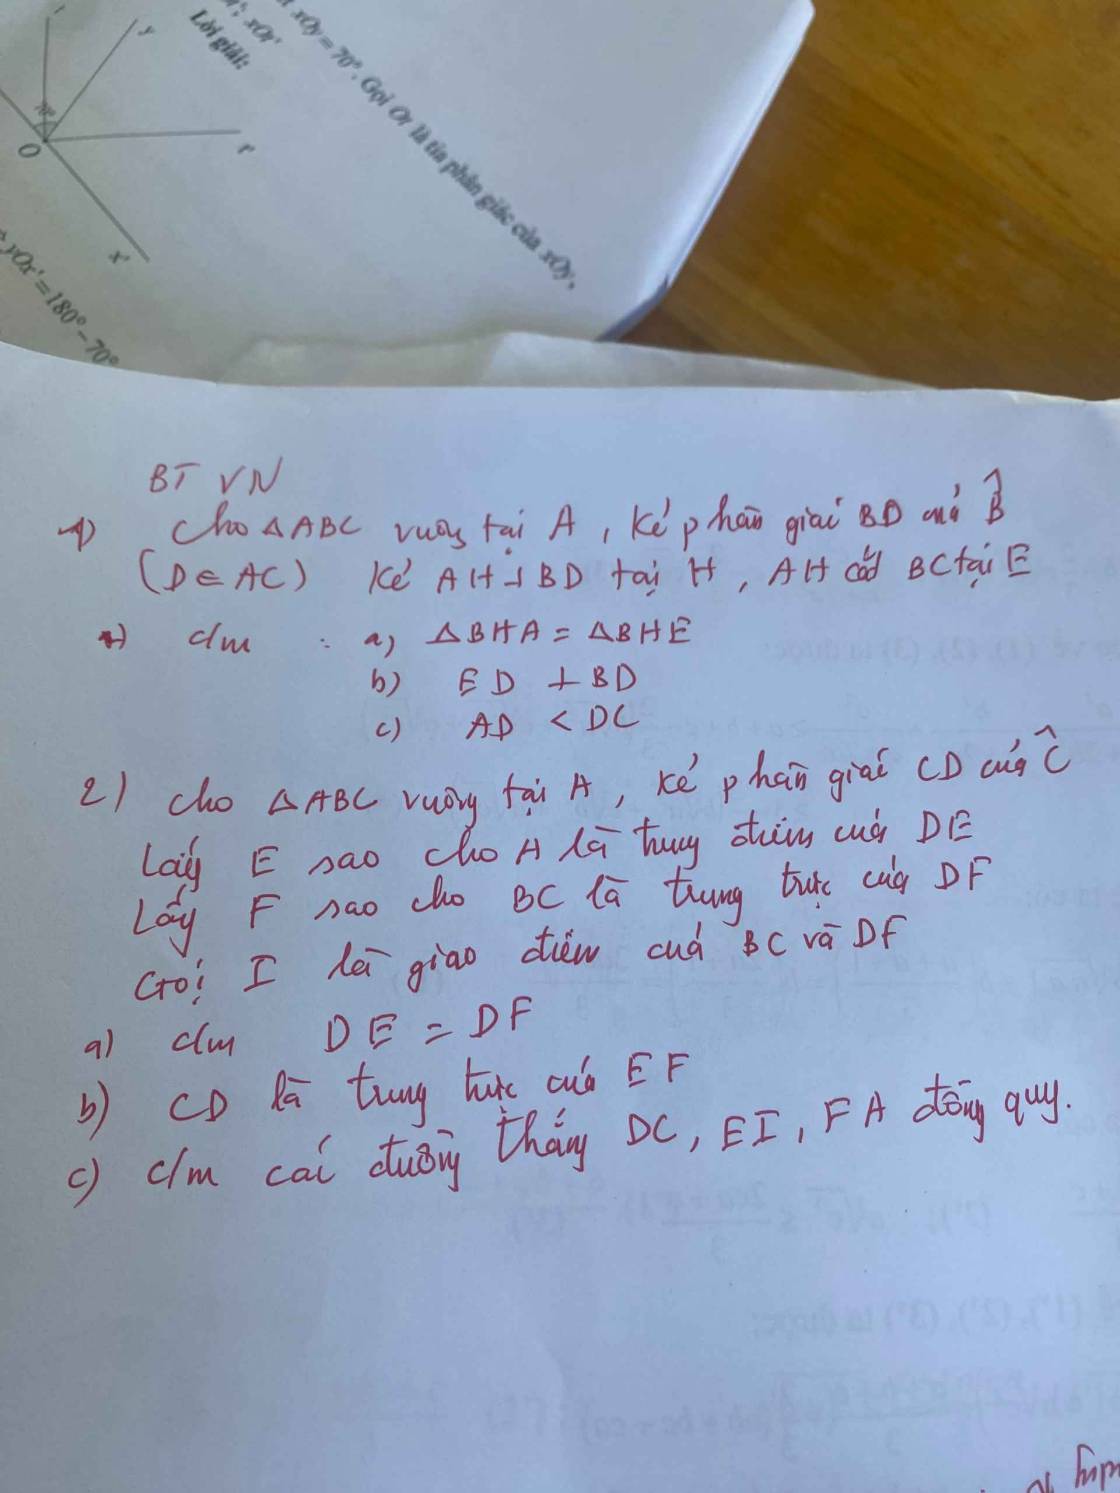 y
xOy = 70°. Gọi Ot là tia phân giác của xOy,
Lời giải:
O
t'
x'
yOx' = 180° - 70°
BT VN
1) Cho △ABC vuông tại A, kẻ phân giác BD của B̂
(D ∈ AC) Kẻ AH ⊥ BD tại H, AH cắt BC tại E
c/m : a) △BHA = △BHE
b) ED ⊥ BD
c) AD < DC
2) Cho △ABC vuông tại A, kẻ phân giác CD của Ĉ
Lấy E sao cho A là trung điểm của DE
Lấy F sao cho BC là trung trực của DF
Gọi I là giao điểm của BC và DF
a) c/m DE = DF
b) CD là trung trực của EF
c) c/m các đường thẳng DC, EI, FA đồng quy.